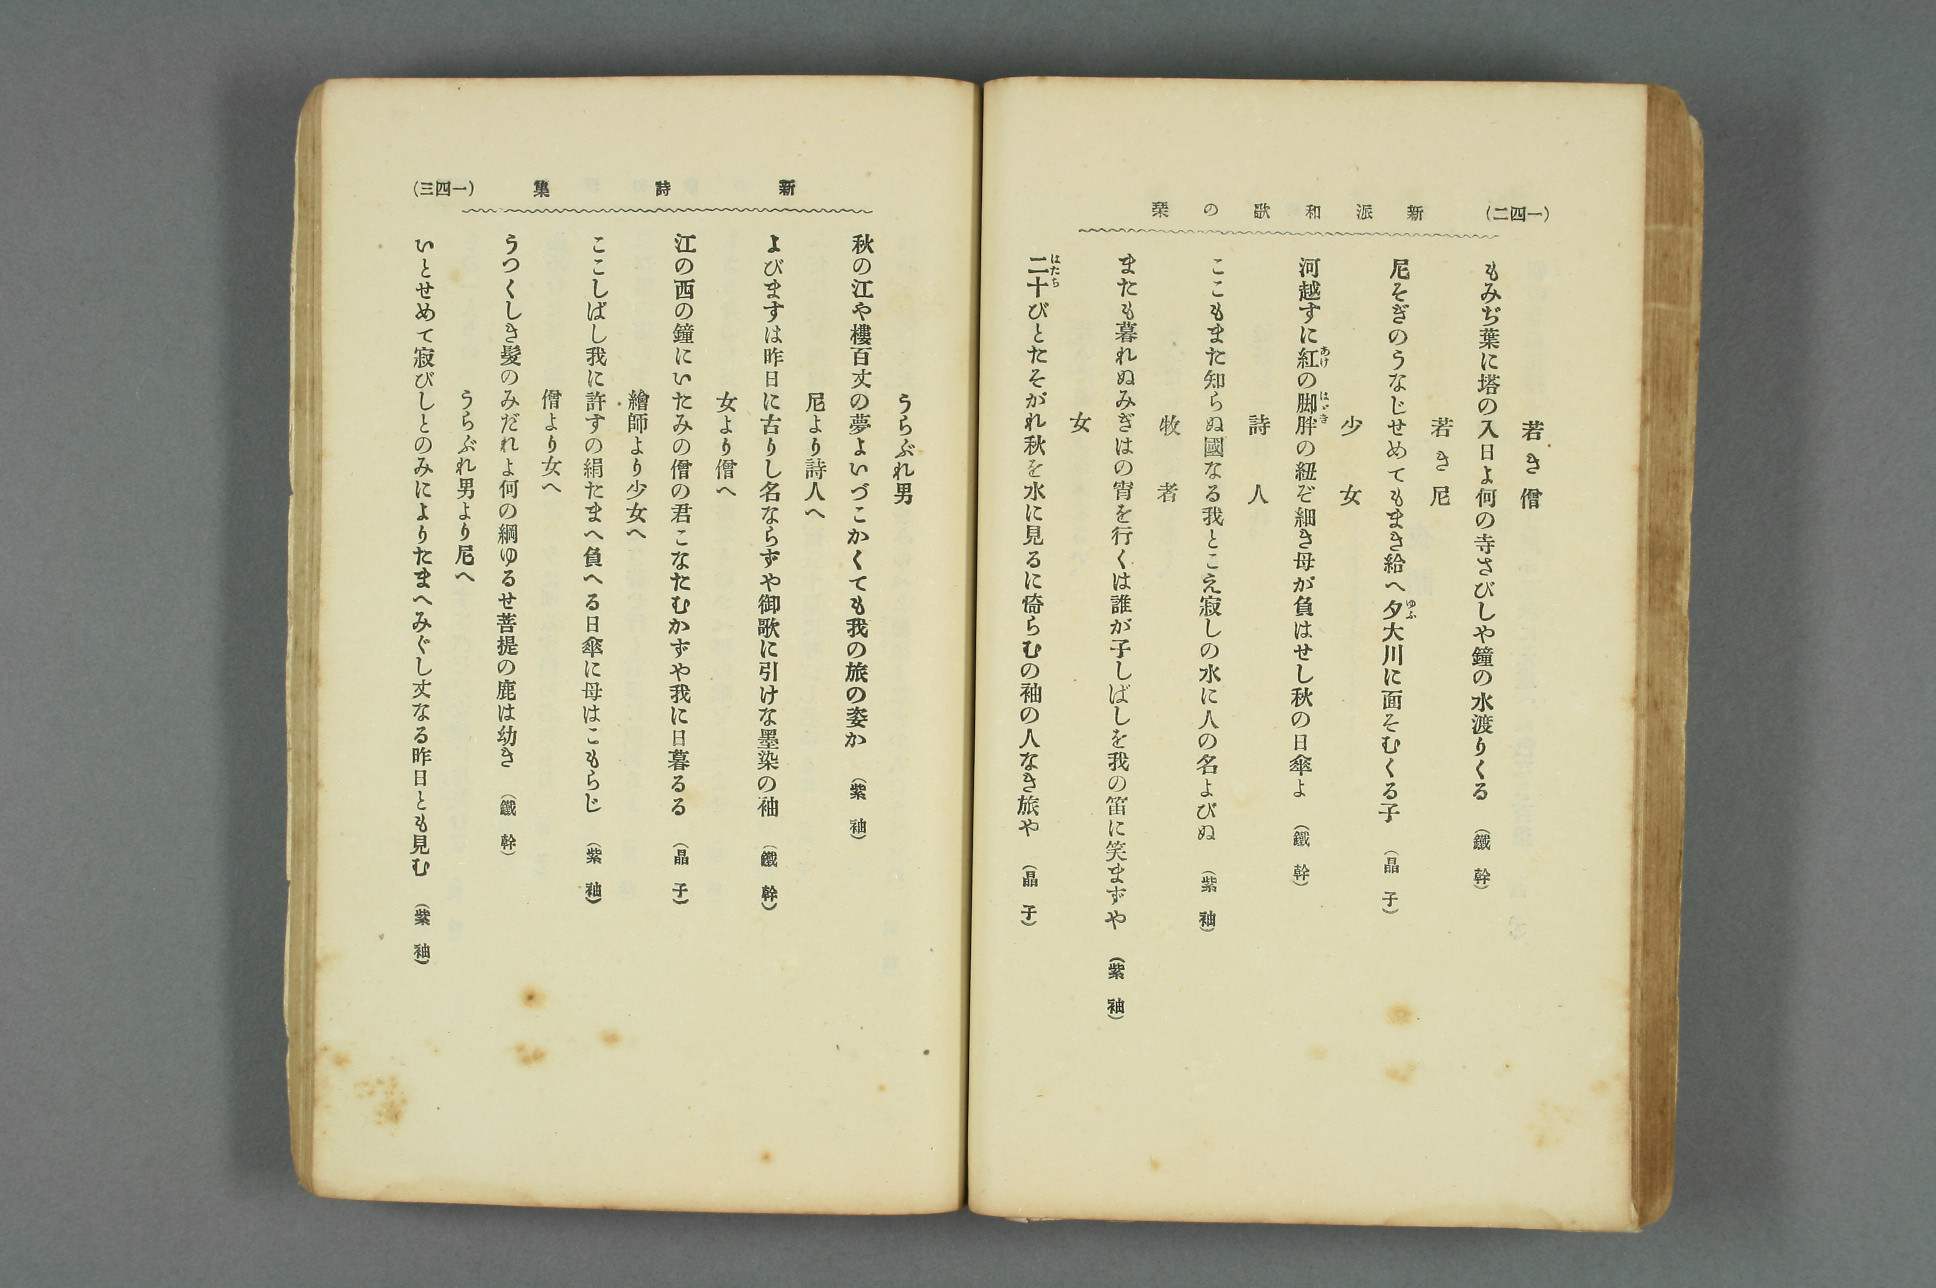 (一四二)　新派和歌の栞
若き僧
もみぢ葉に塔の入日よ何の寺さびしや鐘の水渡りくる　(鐵幹)
若き尼
尼そぎのうなじせめてもまき給へ夕大川に面そむくる子　(晶子)
ゆふ
少女
河越すに紅の脚胖の紐ぞ細き母が負はせし秋の日傘よ　(鐵幹)
あけ　はゞき
詩人
ここもまた知らぬ國なる我とこえ寂しの水に人の名よびぬ　(紫袖)
牧者
またも暮れぬみぎはの宵を行くは誰が子しばしを我の笛に笑まずや　(紫袖)
女
二十びとたそがれ秋を水に見るに倚らむの袖の人なき旅や　(晶子)
はたち
新詩集　(一四三)
うらぶれ男
秋の江や樓百丈の夢よいづこかくても我の旅の姿か　(紫袖)
尼より詩人へ
よびますは昨日に古りし名ならずや御歌に引けな墨染の袖　(鐵幹)
女より僧へ
江の西の鐘にいたみの僧の君こなたむかずや我に日暮るる　(晶子)
繪師より少女へ
ここしばし我に許すの絹たまへ負へる日傘に母はこもらじ　(紫袖)
僧より女へ
うつくしき髮のみだれよ何の綱ゆるせ菩提の鹿は幼き　(鐵幹)
うらぶれ男より尼へ
いとせめて寂びしとのみによりたまへみぐし丈なる昨日とも見む　(紫袖)